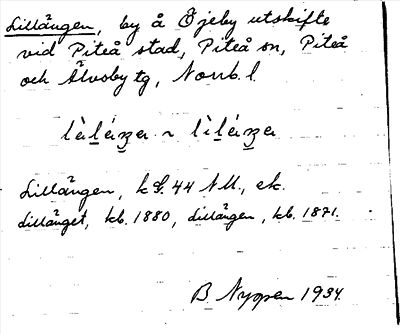 Lillängen, by å Öjeby utskifte
vid Piteå stad, Piteå sn, Piteå
och Älvsby tg, Norrb. l.
Lillängen, k 44 NU, ek.
Lillänget, kb. 1880, Lillängen, kb. 1871.
B. Nygren 1934.